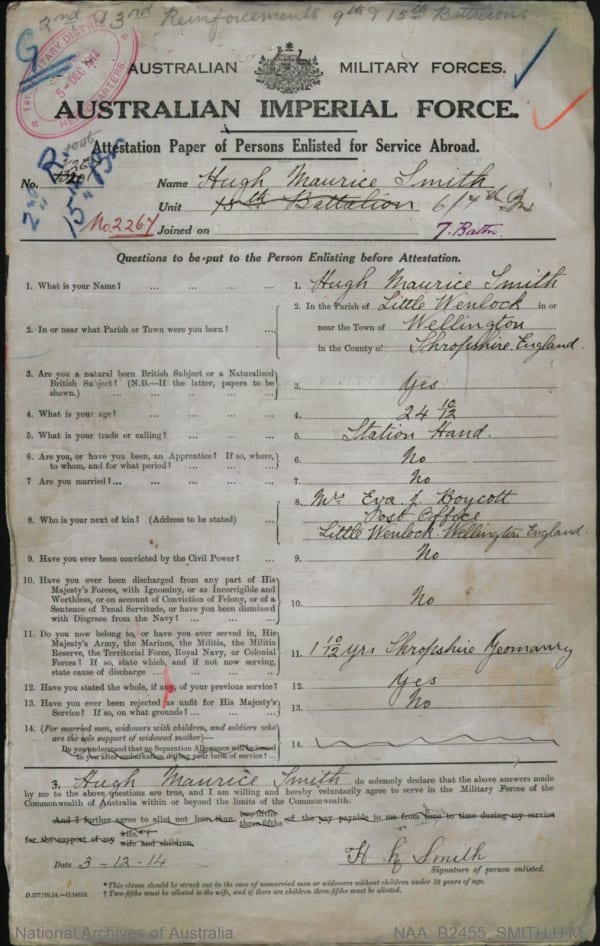 2nd & 3rd Reinforcements 9th & 15th Battalions
G
1ST MILITARY DISTRICT
5-DEC 1914
HEADQUARTERS
AUSTRALIAN MILITARY FORCES.
AUSTRALIAN IMPERIAL FORCE.
Attestation Paper of Persons Enlisted for Service Abroad.
2nd R. 15th Bn
No.
Name Hugh Maurice Smith
Unit 15th Battalion 6/7th Bn
No 2267
Joined on 7. Battn.
Questions to be put to the Person Enlisting before Attestation.
1. What is your Name? ... ... ... ... 1. Hugh Maurice Smith
2. In or near what Parish or Town were you born? ... 2. In the Parish of Little Wenlock in or
near the Town of Wellington
in the County of Shropshire. England.
3. Are you a natural born British Subject or a Naturalized
British Subject? (N.B.—If the latter, papers to be
shown.) ... ... ... ... ... 3. Yes
4. What is your age? ... ... ... ... 4. 24 10/12
5. What is your trade or calling? ... ... ... 5. Station Hand.
6. Are you, or have you been, an Apprentice? If so, where,
to whom, and for what period? ... ... ... 6. No
7 Are you married?... ... ... ... ... 7. No
8. Who is your next of kin? (Address to be stated) ... 8. Mrs Eva J. Boycott
Post Office
Little Wenlock. Wellington. England.
9. Have you ever been convicted by the Civil Power? ... 9. No
10. Have you ever been discharged from any part of His
Majesty's Forces, with Ignominy, or as Incorrigible and
Worthless, or on account of Conviction of Felony, or of a
Sentence of Penal Servitude, or have you been dismissed
with Disgrace from the Navy? ... ... ... 10. No
11. Do you now belong to, or have you ever served in, His
Majesty's Army, the Marines, the Militia, the Militia
Reserve, the Territorial Force, Royal Navy, or Colonial
Forces? If so, state which, and if not now serving,
state cause of discharge ... ... ... ... 11. 1 10/12 yrs Shropshire Yeomanry
12. Have you stated the whole, if any, of your previous service? 12. Yes
13. Have you ever been rejected as unfit for His Majesty's
Service? If so, on what grounds? ... ... ... 13. No
14. (For married men, widowers with children, and soldiers who
are the sole support of widowed mother)—
Do you understand that no Separation Allowance will be issued
to you after embarkation during your term of service? ... 14.
I, Hugh Maurice Smith do solemnly declare that the above answers made
by me to the above questions are true, and I am willing and hereby voluntarily agree to serve in the Military Forces of the
Commonwealth of Australia within or beyond the limits of the Commonwealth.
And I further agree to allot not less than two-fifths three-fifths of the pay payable to me from time to time during my service
for the support of my wife.*† wife and children.
Date 3-12-14
H M Smith
Signature of person enlisted.
*This clause should be struck out in the case of unmarried men or widowers without children under 18 years of age.
† Two-fifths must be allotted to the wife, and if there are children three-fifths must be allotted.
D.277/10.14.—C.14819.
National Archives of Australia
NAA: B2455, SMITH H M